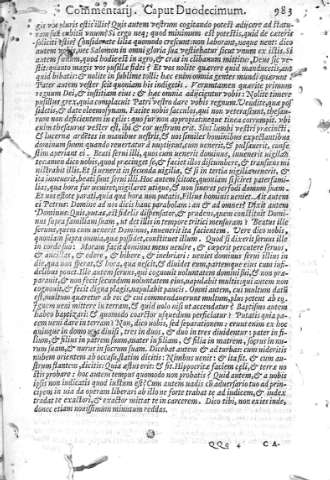 Commentarij. Caput Duodecimum. 983
gis vos pluris estis illis? Quis autem vestrum cogitando potest adijcere ad staturam suā cubitū vnum? Si ergo neq; quod minimum est potestis, quid de cæteris
soliciti estis? Considerate lilia quomodo crescunt: non laborant, neque nent: dico
autem vobis, nec Salomon in omni gloria sua vestiebatur sicut vnum ex istis. Si
autem fœnum, quod hodie est in agro, & cras in clibanum mittitur, Deus sic vestit: quanto magis vos pusillæ fidei? Et vos nolite quærere quid manducetis, aut
quid bibatis: & nolite in sublime tolli: hæc enim omnia gentes mundi quærunt.
Pater autem vester scit quoniam his indigetis. Veruntamen quærite primum
regnum Dei, & iustitiam eius, & hæc omnia adijcientur vobis. Nolite timere
pusillus grex, quia complacuit Patri vestro dare vobis regnum. Vendite quæ possidetis, & date eleemosynam. Facite vobis sacculos, qui non veterascunt, thesaurum non deficientem in cælis: quo fur non appropiat, neque tinea corrumpit. vbi
enim thesaurus vester est, ibi & cor vestrum erit. Sint lumbi vestri præcincti,
& lucernæ ardētes in manibus vestris, & vos similes hominibus expectantibus
dominum suum quando reuertatur à nuptijs: vt, cum venerit, & pulsauerit, confestim aperiant ei. Beati serui illi, quos cum venerit dominus, inuenerit vigilātes: amen dico vobis, quod præcinget se, & faciet illos discumbere, & transiens ministrabit illis. Et si venerit in secunda vigilia, & si in tertia vigilia venerit, & ita inuenerit, beati sunt serui illi. Hoc autem scitote, quoniam si sciret paterfamilias, qua hora fur veniret, vigilaret vtique, & non sineret perfodi domum suam.
Et vos estote parati, quia qua hora non putatis, Filius hominis veniet. Ait autem
ei Petrus: Domine ad nos dicis hanc parabolam: an & ad omnes? Dixit autem
Dominus: Quis, putas, est fidelis dispensator, & prudens, quem constituit Dominus supra familiam suam, vt det illis in tempore tritici mensuram? Beatus ille
seruus, quem cum venerit Dominus, inuenerit ita facientem. Vere dico vobis,
quoniam supra omnia, quæ possidet, constituet illum. Quod si dixerit seruus ille
in corde suo: Moram facit dominus meus venire, & cœperit percutere seruos,
& ancillas, & edere, & bibere, & inebriari: veniet dominus serui illius in
die, qua non sperat, & hora, qua nescit, & diuidet eum, partemque eius cum infidelibus ponet. Ille autem seruus, qui cognouit voluntatem domini sui, & non præparauit, & non fecit secundum voluntatem eius, vapulabit multis: qui autem non
cognouit, & fecit digna plagis, vapulabit paucis. Omni autem, cui multum datū
est, multum quæretur ab eo: & cui commendauerunt multum, plus petent ab eo.
Ignem veni mittere in terram, & quid volo nisi vt accendatur? Baptismo autem
habeo baptizari: & quomodo coarctor vsquedum perficiatur? Putatis quia pacem veni dare in terram? Non, dico vobis, sed separationem: erunt enim ex hoc
quinque in domo vna diuisi, tres in duos, & duo in tres diuidentur: pater in filium, & filius in patrem suum, mater in filiam, & filia in matrem, socrus in nurum suam, & nurus in socrum suam. Dicebat autem & ad turbas: cum videritis
nubem orientem ab occasu, statim dicitis: Nimbus venit: & ita fit. & cum austrum flantem, dicitis: Quia æstus erit: & fit. Hypocritæ faciem cæli, & terræ nostis probare: hoc autem tempus quomodo non probatis? Quid autem, & à vobis
ipsis non iudicatis quod iustum est? Cum autem vadis cū aduersario tuo ad principem in via da operam liberari ab illo: ne forte trahat te ad iudicem, & iudex
tradat te exactori, & exactor mittat te in carcerem. Dico tibi, non exies inde,
donec etiam nouissimum minutum reddas.
CA-